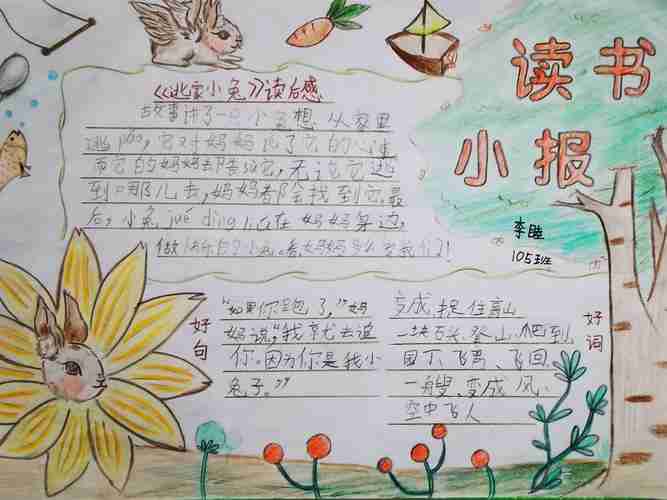 读书
小报
李睦
105班
《逃家小兔》读后感
故事讲了一只小兔想从家里
逃pǎo,它对妈妈说了它的心里
而它的妈妈却告诉它,无论它逃
到哪儿去,妈妈都会找到它,最
后,小兔jué dìng 在妈妈身边,
做 小兔。看,妈妈多么爱我们!
好句
"如果你跑了,"妈
妈说,"我就去追
你。因为你是我小
兔子。"
好词
变成 捉住 高山
一块石头、登山、爬到
园丁、飞鸟、飞回
一艘、变成 风、
空中飞人